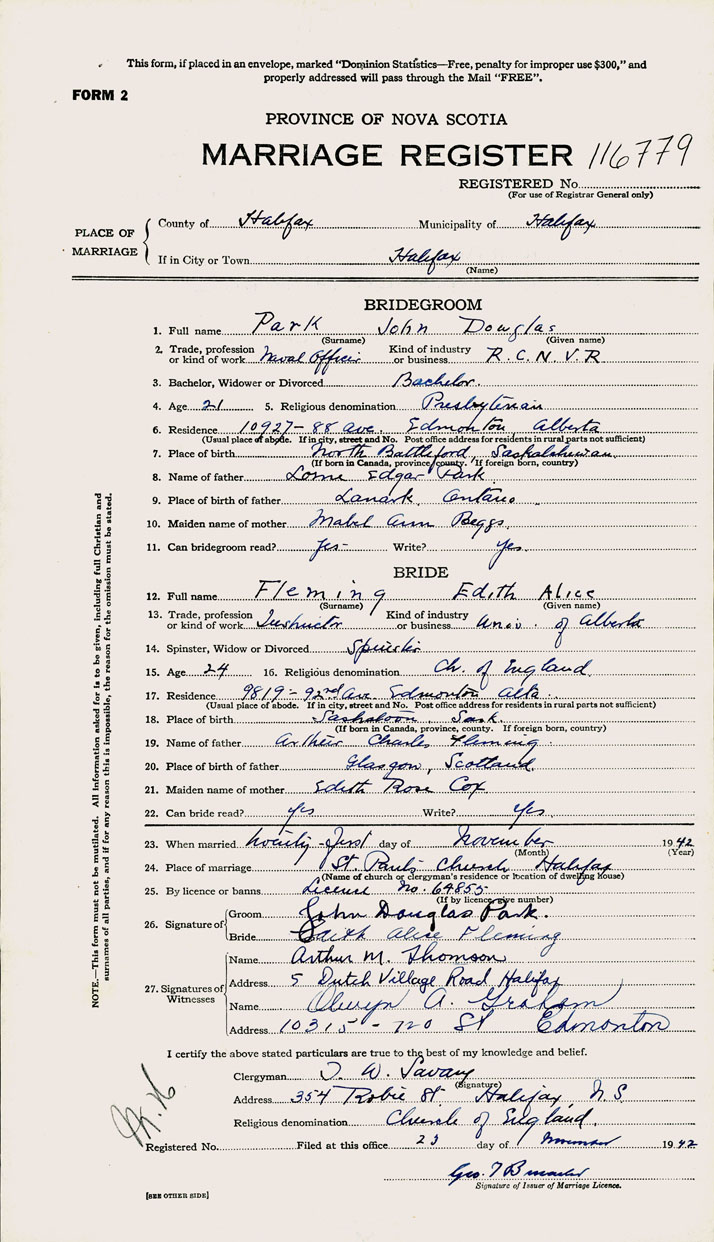 This form, if placed in an envelope, marked "Dominion Statistics—Free, penalty for improper use $300," and
properly addressed will pass through the Mail "FREE".
FORM 2
PROVINCE OF NOVA SCOTIA
MARRIAGE REGISTER 116779
REGISTERED No.
(For use of Registrar General only)
PLACE OF MARRIAGE
County of Halifax Municipality of Halifax
If in City or Town Halifax
(Name)
BRIDEGROOM
1. Full name Park John Douglas
(Surname) (Given name)
2. Trade, profession or kind of work Naval Officer Kind of industry or business R.C.N.V.R
3. Bachelor, Widower or Divorced Bachelor.
4. Age 21 5. Religious denomination Presbyterian
6. Residence 10927-88 ave. Edmonton Alberta
(Usual place of abode. If in city, street and No. Post office address for residents in rural parts not sufficient)
7. Place of birth North Battleford, Saskatchewan.
(If born in Canada, province, county. If foreign born, country)
8. Name of father Lorne Edgar Park
9. Place of birth of father Lanark, Ontario
10. Maiden name of mother Mabel Ann Beggs.
11. Can bridegroom read? Yes- Write? Yes.
BRIDE
12. Full name Fleming Edith Alice
(Surname) (Given name)
13. Trade, profession or kind of work Instructor Kind of industry or business Univ. of Alberta
14. Spinster, Widow or Divorced Spinster
15. Age 24 16. Religious denomination Ch. of England.
17. Residence 9819-92nd Ave. Edmonton Alta.
(Usual place of abode. If in city, street and No. Post office address for residents in rural parts not sufficient)
18. Place of birth Saskatoon, Sask
(If born in Canada, province, county. If foreign born, country)
19. Name of father Arthur Charles Fleming.
20. Place of birth of father Glasgow, Scotland.
21. Maiden name of mother Edith Rose Cox
22. Can bride read? yes Write? Yes.
23. When married twenty-first day of November 1942
(Month) (Year)
24. Place of marriage St. Paul's Church Halifax
(Name of church or clergyman's residence or location of dwelling house)
25. By licence or banns License No. 64855
(If by licence give number)
26. Signature of
Groom John Douglas Park.
Bride Edith Alice Fleming
27. Signatures of Witnesses
Name Arthur M. Thomson
Address 5 Dutch Village Road, Halifax
Name Olwyn A. Graham
Address 10315-120 St Edmonton
I certify the above stated particulars are true to the best of my knowledge and belief.
Clergyman W. Savary
(Signature)
Address 354 Robie St. Halifax, N.S.
Religious denomination Church of England.
Registered No. Filed at this office 23 day of November 1942
Geo.
Signature of Issuer of Marriage Licence.
[SEE OTHER SIDE]
NOTE.—This form must not be mutilated. All information asked for is to be given, including full Christian and
surnames of all parties, and if for any reason this is impossible, the reason for the omission must be stated.